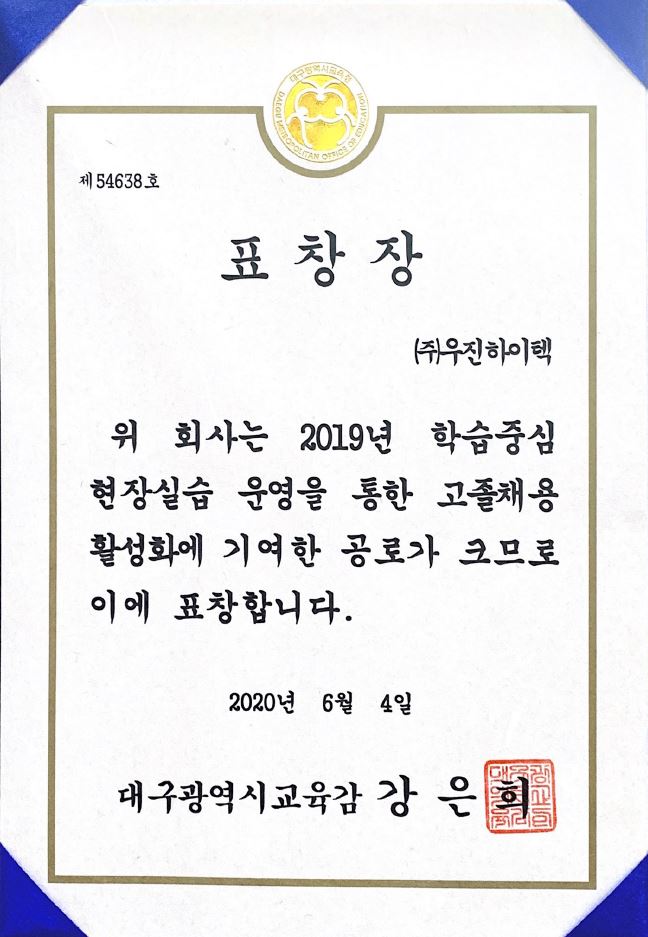 대구광역시교육청
DAEGU METROPOLITAN OFFICE OF EDUCATION
제 54638 호
표 창 장
(주)우진하이텍
위 회사는 2019년 학습중심
현장실습 운영을 통한 고졸채용
활성화에 기여한 공로가 크므로
이에 표창합니다.
2020년 6월 4일
대구광역시교육감 강 은 희